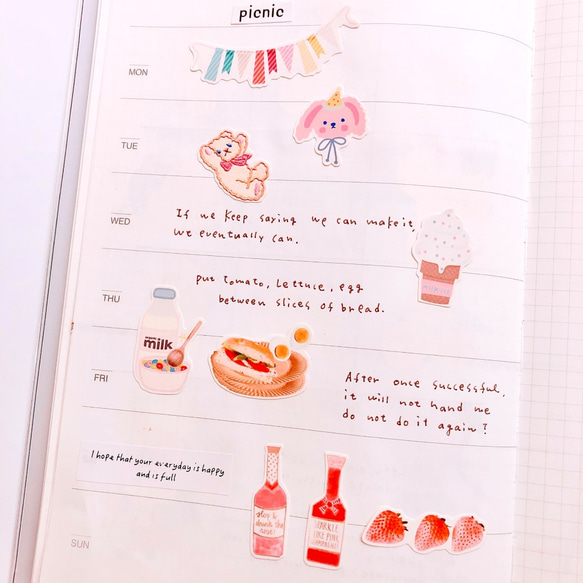 picnic
MON
TUE
WED
If we keep saying we can make it,
we eventually can.
THU
put tomato, Lettuce, egg
between slices of bread.
milk
FRI
After once successful,
it will not hand me
do not do it again?
I hope that your everyday is happy
and is full
stop &
drink the
rosé!
SPARKLE
LIKE PINK
CHAMPAGNE
SUN